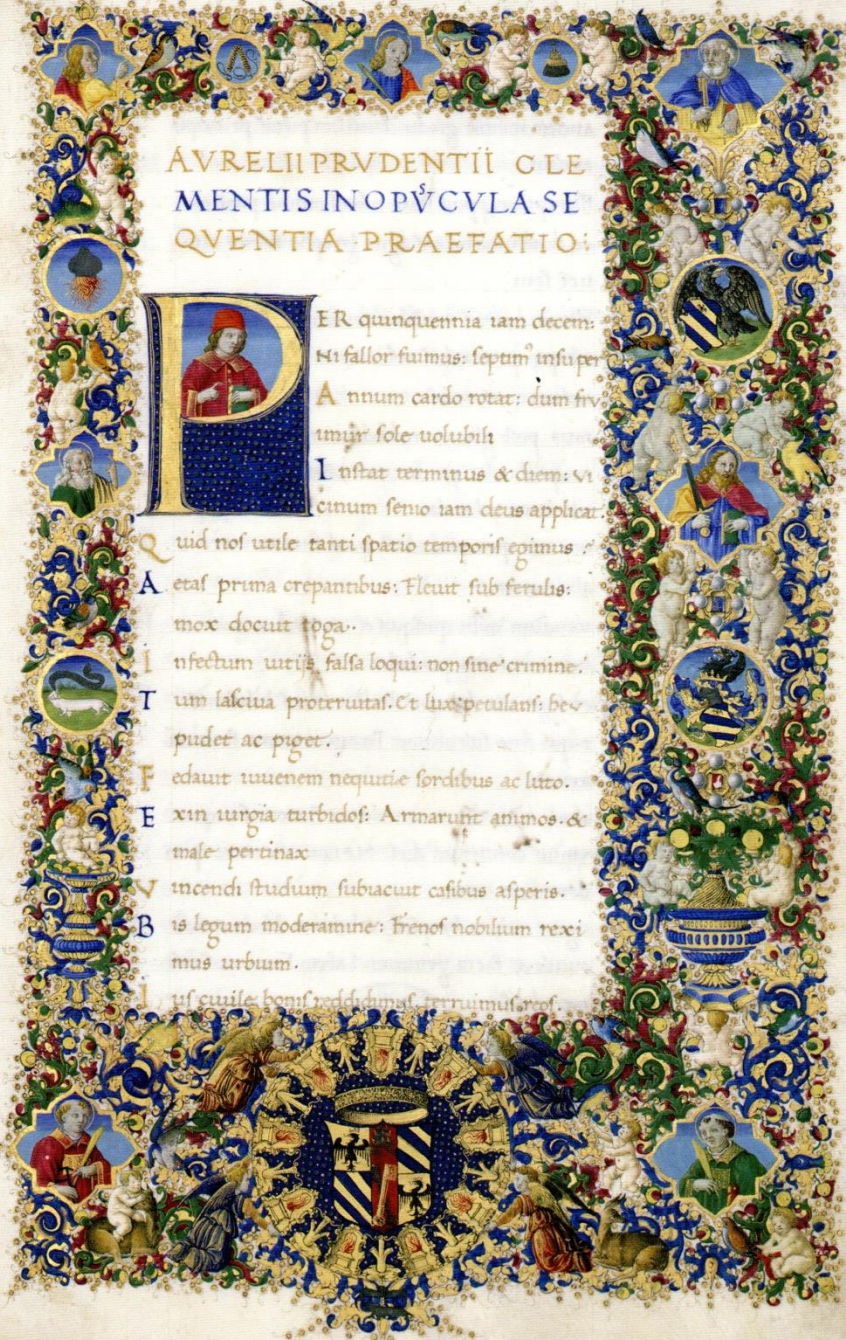 AVRELII PRVDENTII CLE
MENTIS IN OPVSCVLA SE
QVENTIA PRAEFATIO:
PER quinquennia iam decem:
Ni fallor fuimus: septim᾽ insuper
Annum cardo rotat: dum fru
imur sole uolubili
Instat terminus & diem: Vi
cinum senio iam deus applicat.
Quid nos utile tanti spatio temporis egimus:
Aetas prima crepantibus: Fleuit sub ferulis:
mox docuit toga.
Infectum uitijs falsa loqui: non sine crimine.
Tum lasciua proteruitas. Et luxus petulans: heu
pudet ac piget.
Fedauit iuuenem nequitie sordibus ac luto.
Exin iurgia turbidos: Armarunt animos. &
male pertinax
Vincendi studium subiacuit casibus asperis.
Bis legum moderamine: Frenos nobilium rexi
mus urbium.
Ius ciuile bonis reddidimus. terruimus reos.